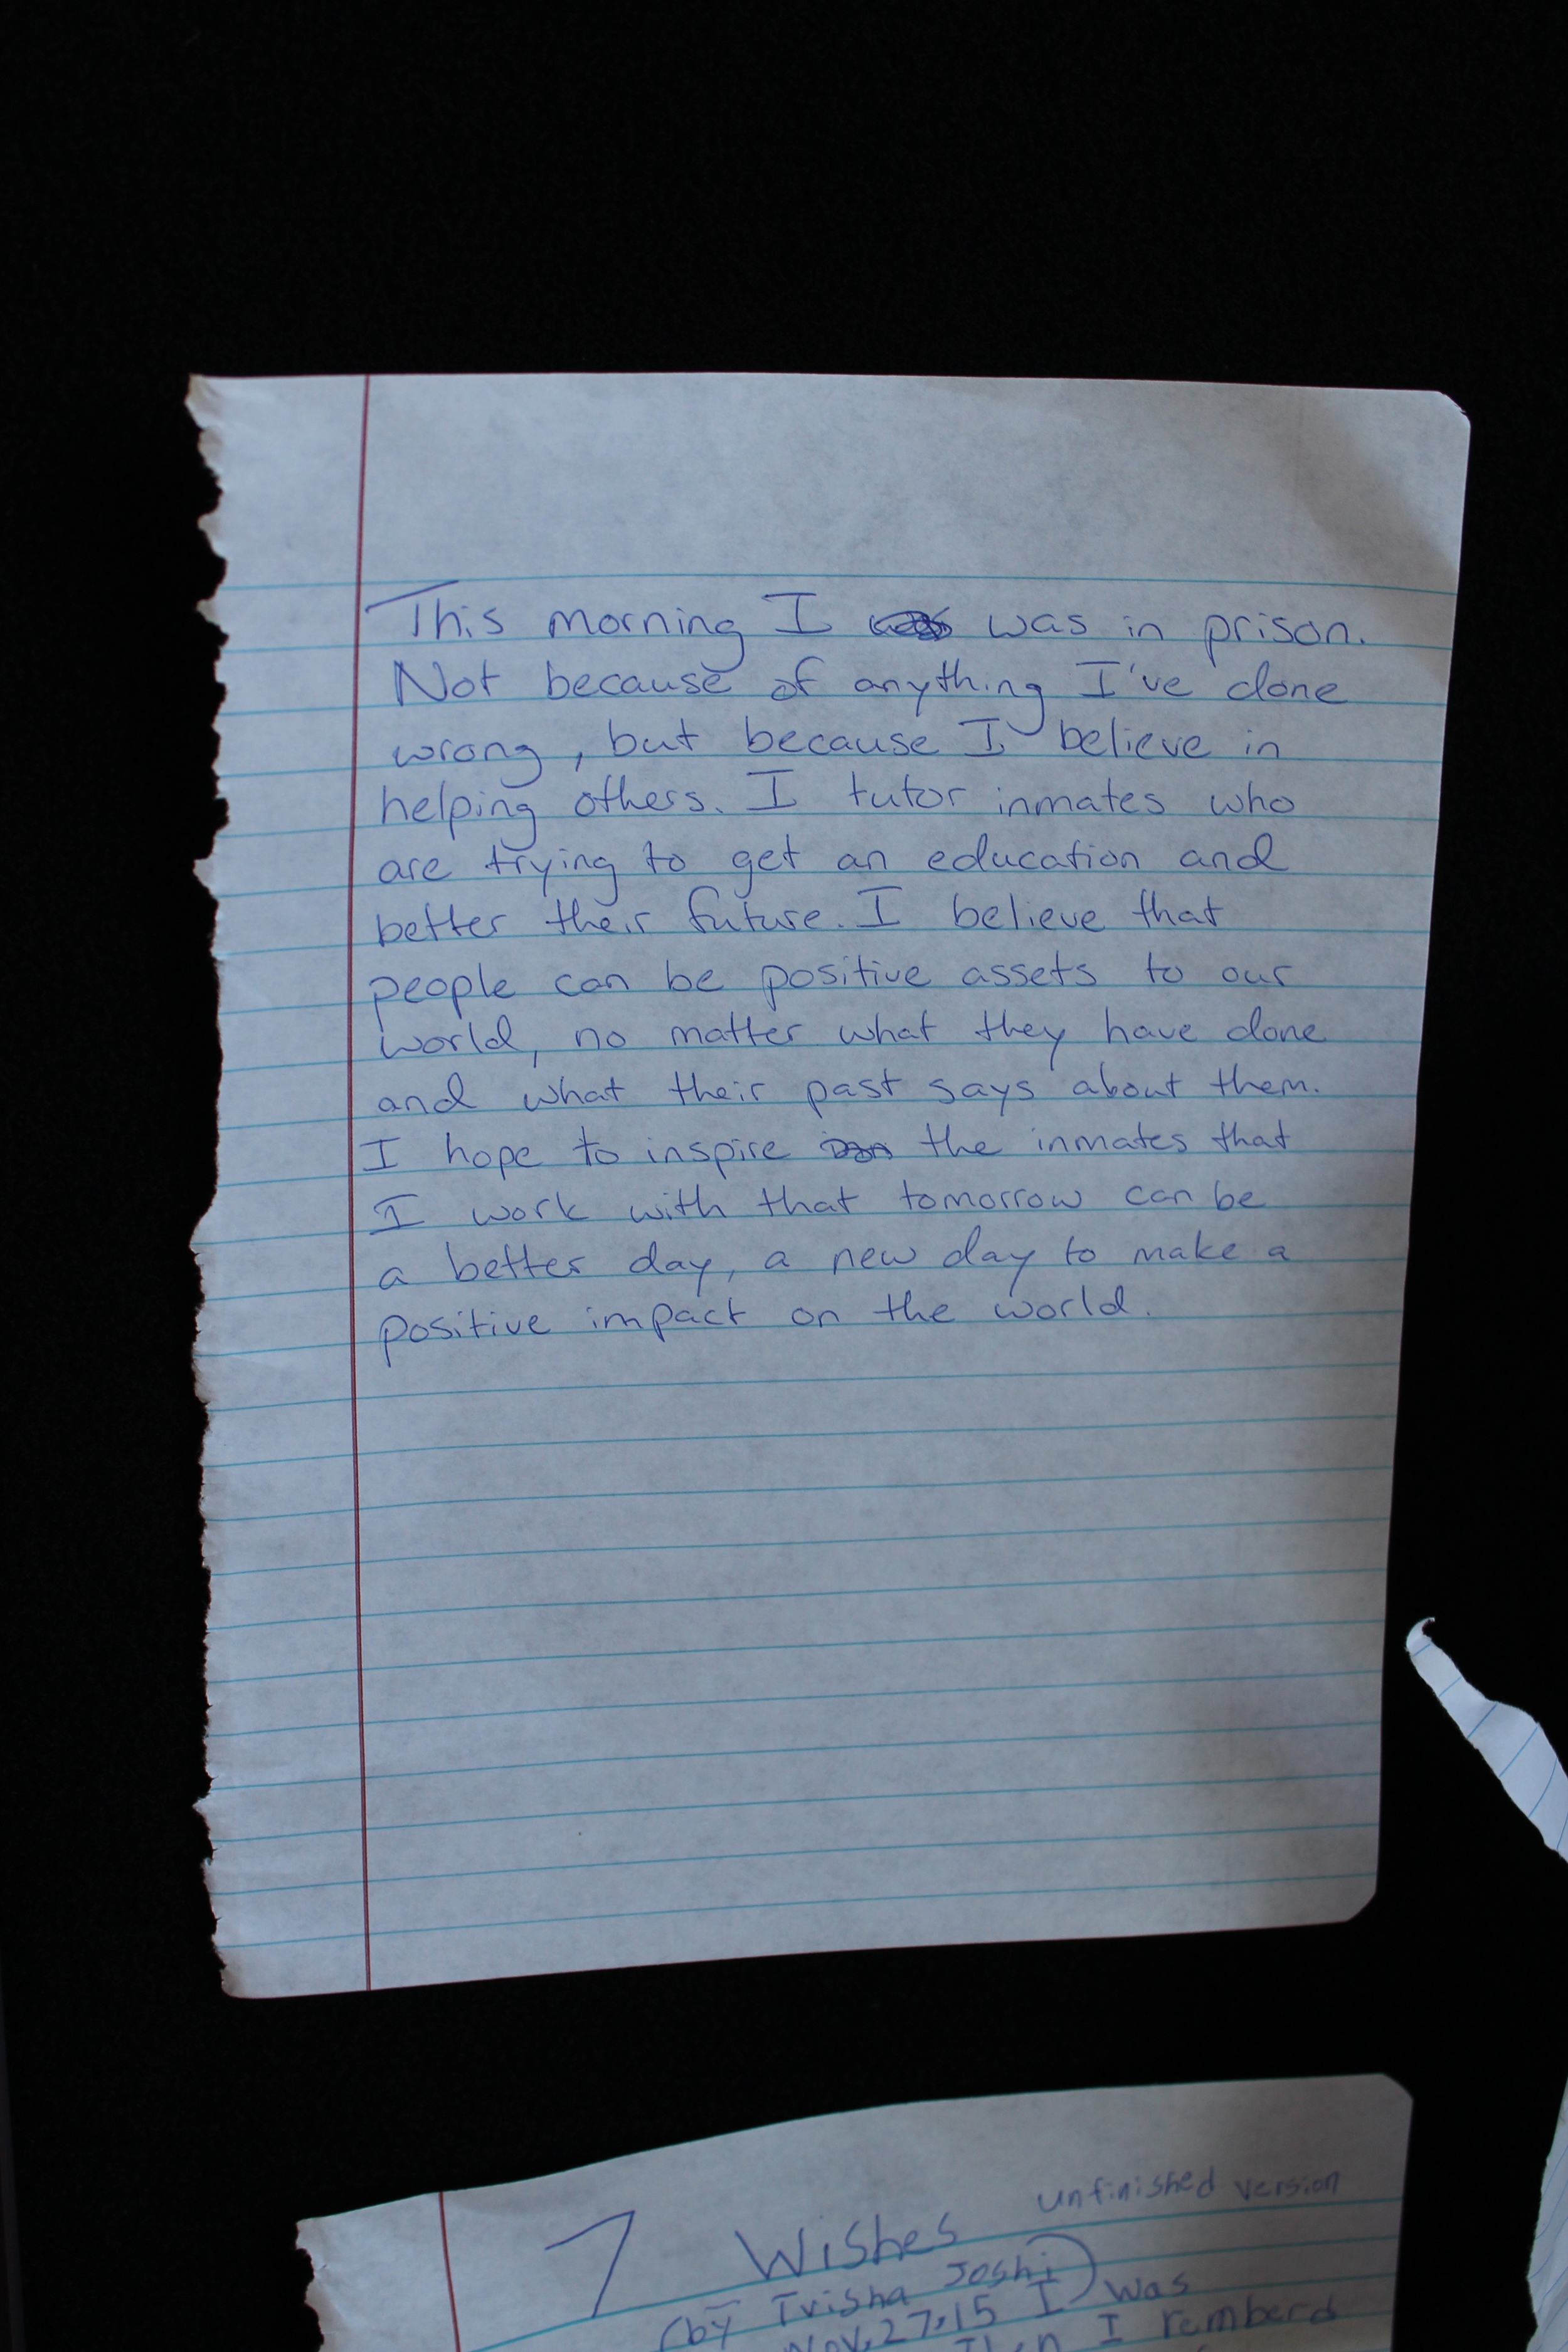 This morning I was in prison.
Not because of anything I've done
wrong, but because I believe in
helping others. I tutor inmates who
are trying to get an education and
better their future. I believe that
people can be positive assets to our
world, no matter what they have done
and what their past says about them.
I hope to inspire the inmates that
I work with that tomorrow can be
a better day, a new day to make a
positive impact on the world.
unfinished version
7 Wishes
(by Trisha Joshi)
Nov. 27, 15 I was
I remberd